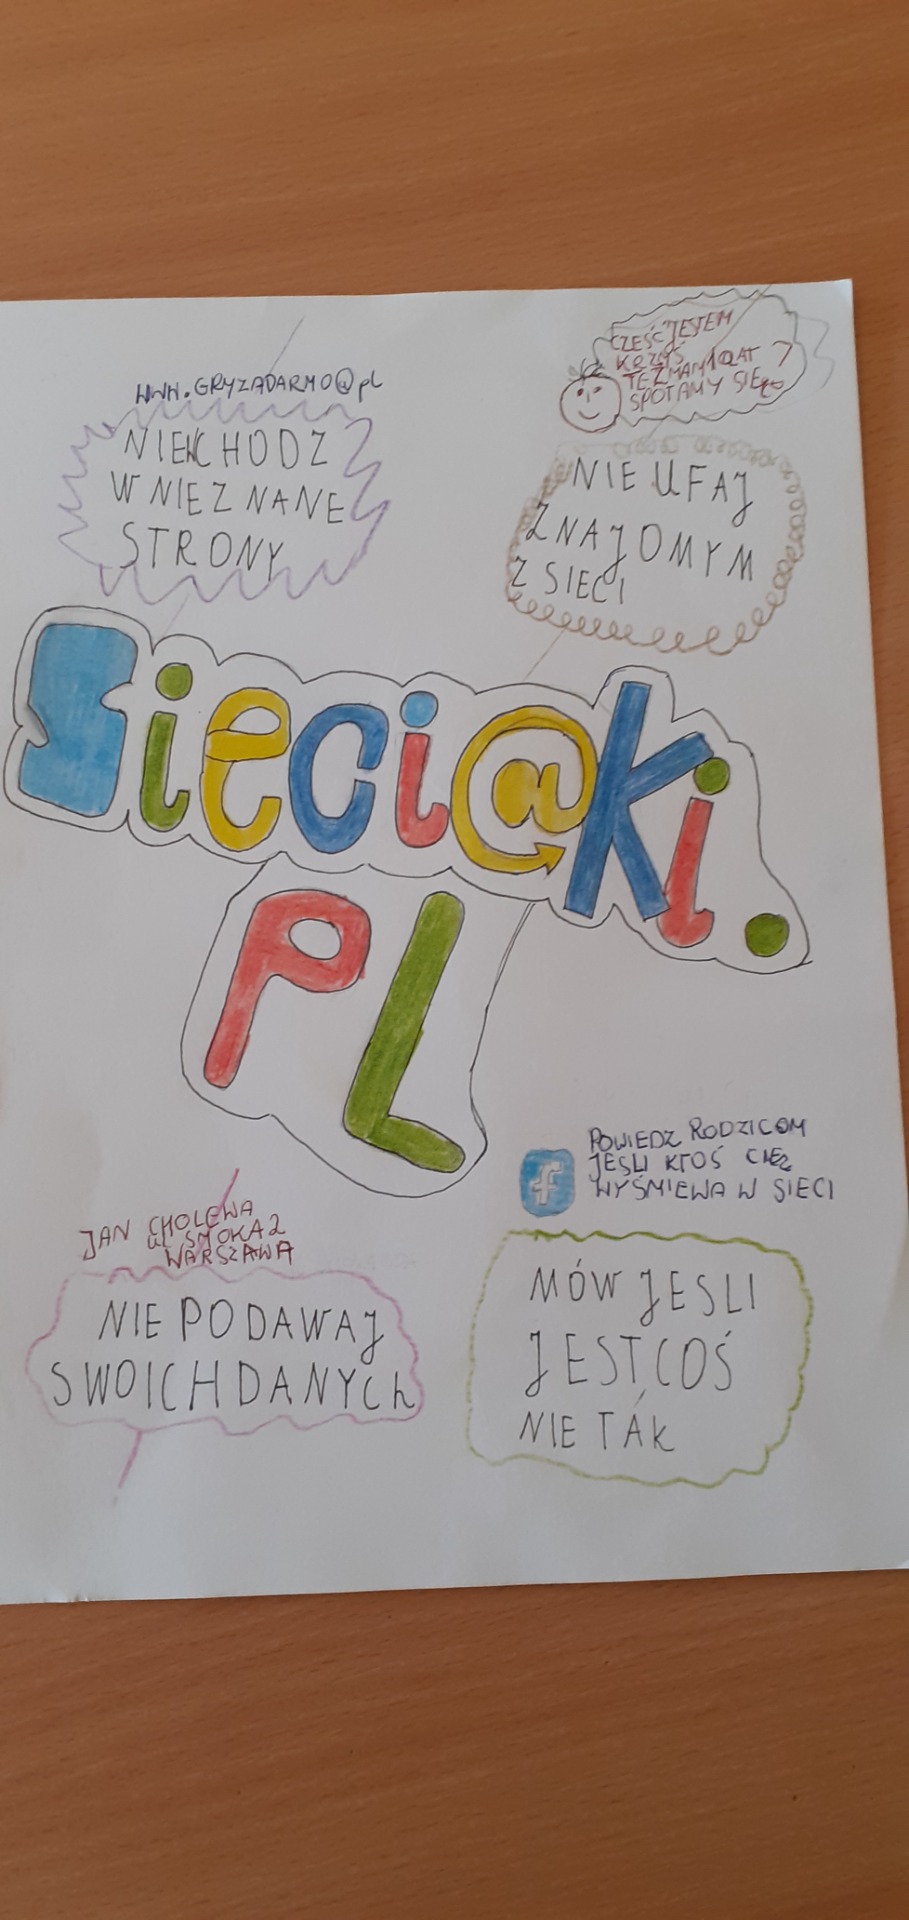 WWW.GRYZADARMO@pl
NIEWCHODZ
W NIEZNANE
STRONY
CZEŚĆ JESTEM
KRZYŚ
TEŻ MAM 10 LAT
SPOTAMY SIĘ?
NIE UFAJ
ZNAJOMYM
Z SIECI
Sieci@ki.
PL
JAN CHOLEWA
ul SMOKA 2
WARSZAWA
NIE PODAWAJ
SWOICH DANYCh
f
POWIEDZ RODZICOM
JEŚLI KTOŚ CIĘ
WYŚMIEWA W SIECI
MÓW JESLI
JEST COŚ
NIE TAK